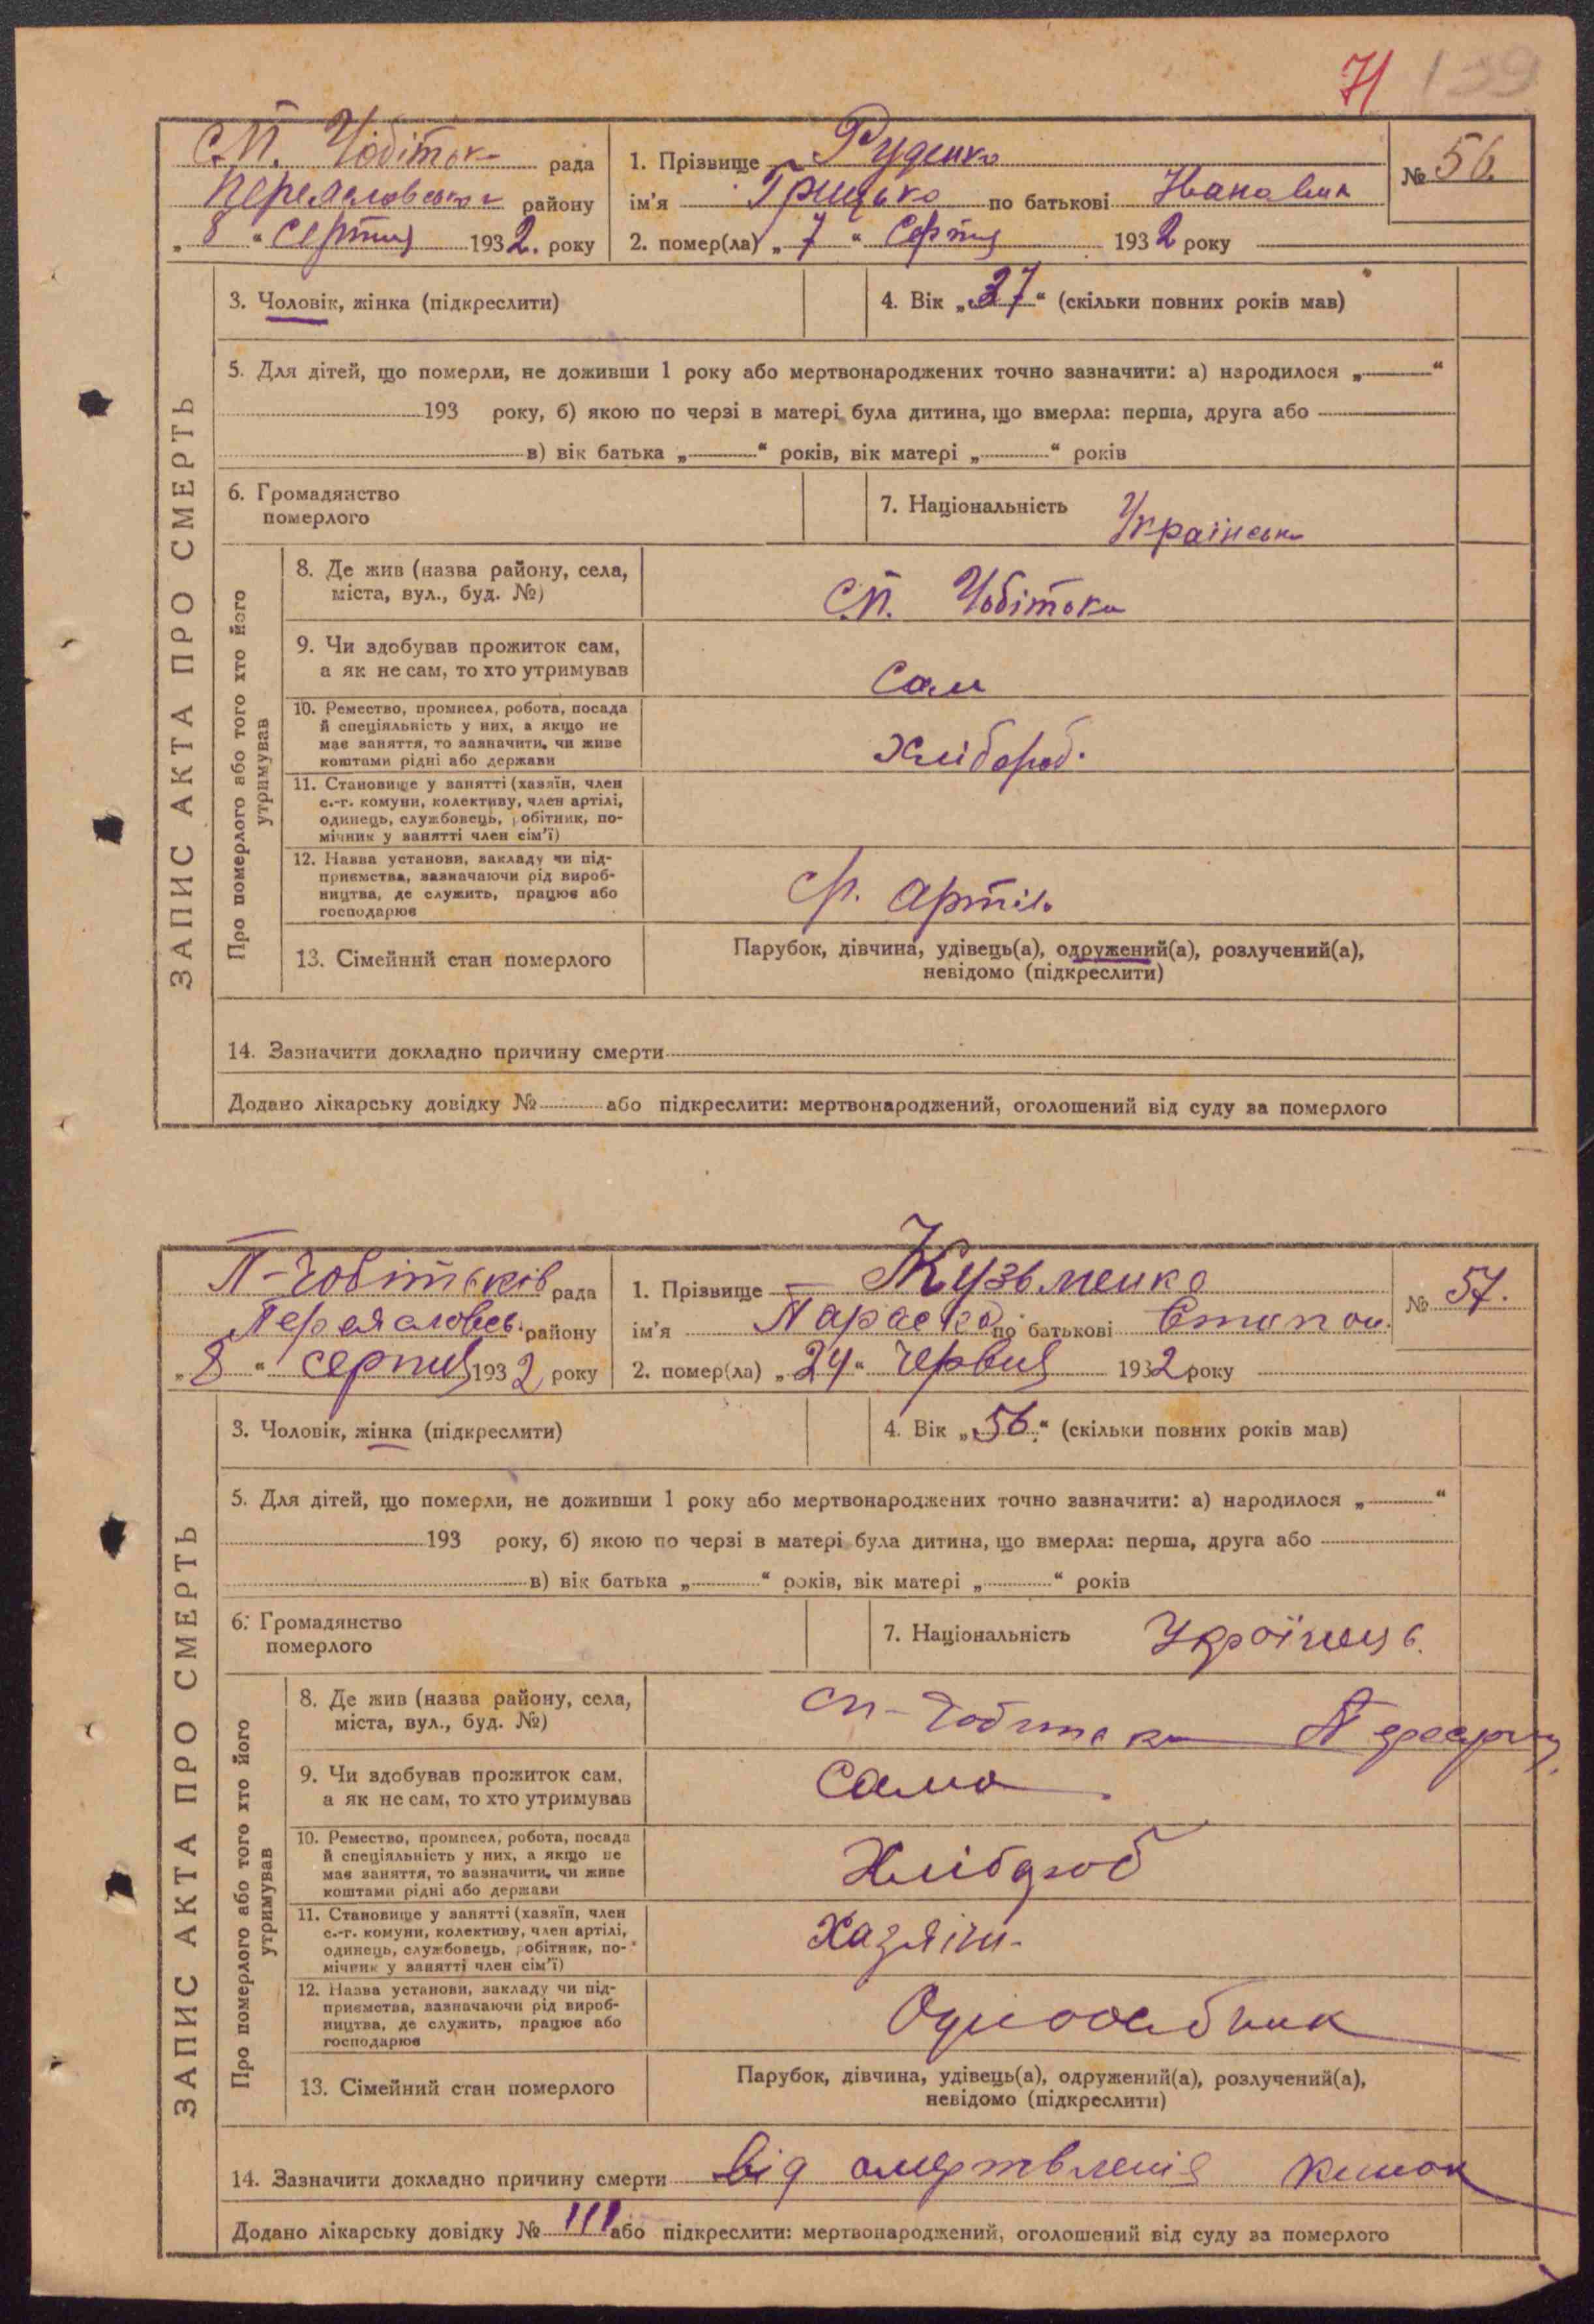 71 139
С.П. Чобіток рада
Переяславського району
„8“ Серпня 1932. року
1. Прізвище Руденко
ім'я Грицько по батькові Иванович
2. помер(ла) „7“ Серпня 1932 року
№ 56.
ЗАПИС АКТА ПРО СМЕРТЬ
3. Чоловік, жінка (підкреслити)
4. Вік „37“ (скільки повних років мав)
5. Для дітей, що померли, не доживши 1 року або мертвонароджених точно зазначити: а) народилося „ “
193 року, б) якою по черзі в матері була дитина, що вмерла: перша, друга або
в) вік батька „ “ років, вік матері „ “ років
6. Громадянство
померлого
7. Національність Українськ
Про померлого або того хто його
утримував
8. Де жив (назва району, села,
міста, вул., буд. №)
С.П. Чобітока
9. Чи здобував прожиток сам,
а як не сам, то хто утримував
Сам
10. Ремество, промисел, робота, посада
й спеціяльність у них, а якщо не
має заняття, то зазначити, чи живе
коштами рідні або держави
Хлібороб.
11. Становище у занятті (хазяїн, член
с.-г. комуни, колективу, член артілі,
одинець, службовець, робітник, по-
мічник у занятті член сім'ї)
12. Назва установи, закладу чи під-
приємства, зазначаючи рід вироб-
ництва, де служить, працює або
господарює
Ср. артіль
13. Сімейний стан померлого
Парубок, дівчина, удівець(а), одружений(а), розлучений(а),
невідомо (підкреслити)
14. Зазначити докладно причину смерти
Додано лікарську довідку № або підкреслити: мертвонароджений, оголошений від суду за померлого
П-Чобітьків рада
Переяславськ. району
„8“ серпня 1932 року
1. Прізвище Кузьменко
ім'я Параска по батькові Степан
2. помер(ла) „24“ Червня 1932 року
№ 57.
ЗАПИС АКТА ПРО СМЕРТЬ
3. Чоловік, жінка (підкреслити)
4. Вік „56.“ (скільки повних років мав)
5. Для дітей, що померли, не доживши 1 року або мертвонароджених точно зазначити: а) народилося „ “
193 року, б) якою по черзі в матері була дитина, що вмерла: перша, друга або
в) вік батька „ “ років, вік матері „ “ років
6. Громадянство
померлого
7. Національність Українець.
Про померлого або того хто його
утримував
8. Де жив (назва району, села,
міста, вул., буд. №)
СП-Чобітока
9. Чи здобував прожиток сам,
а як не сам, то хто утримував
Сама
10. Ремество, промисел, робота, посада
й спеціяльність у них, а якщо не
має заняття, то зазначити, чи живе
коштами рідні або держави
Хлібороб
11. Становище у занятті (хазяїн, член
с.-г. комуни, колективу, член артілі,
одинець, службовець, робітник, по-
мічник у занятті член сім'ї)
Хазяїн-
12. Назва установи, закладу чи під-
приємства, зазначаючи рід вироб-
ництва, де служить, працює або
господарює
Одноосібник
13. Сімейний стан померлого
Парубок, дівчина, удівець(а), одружений(а), розлучений(а),
невідомо (підкреслити)
14. Зазначити докладно причину смерти від омертвленія кишок
Додано лікарську довідку № 111 або підкреслити: мертвонароджений, оголошений від суду за померлого